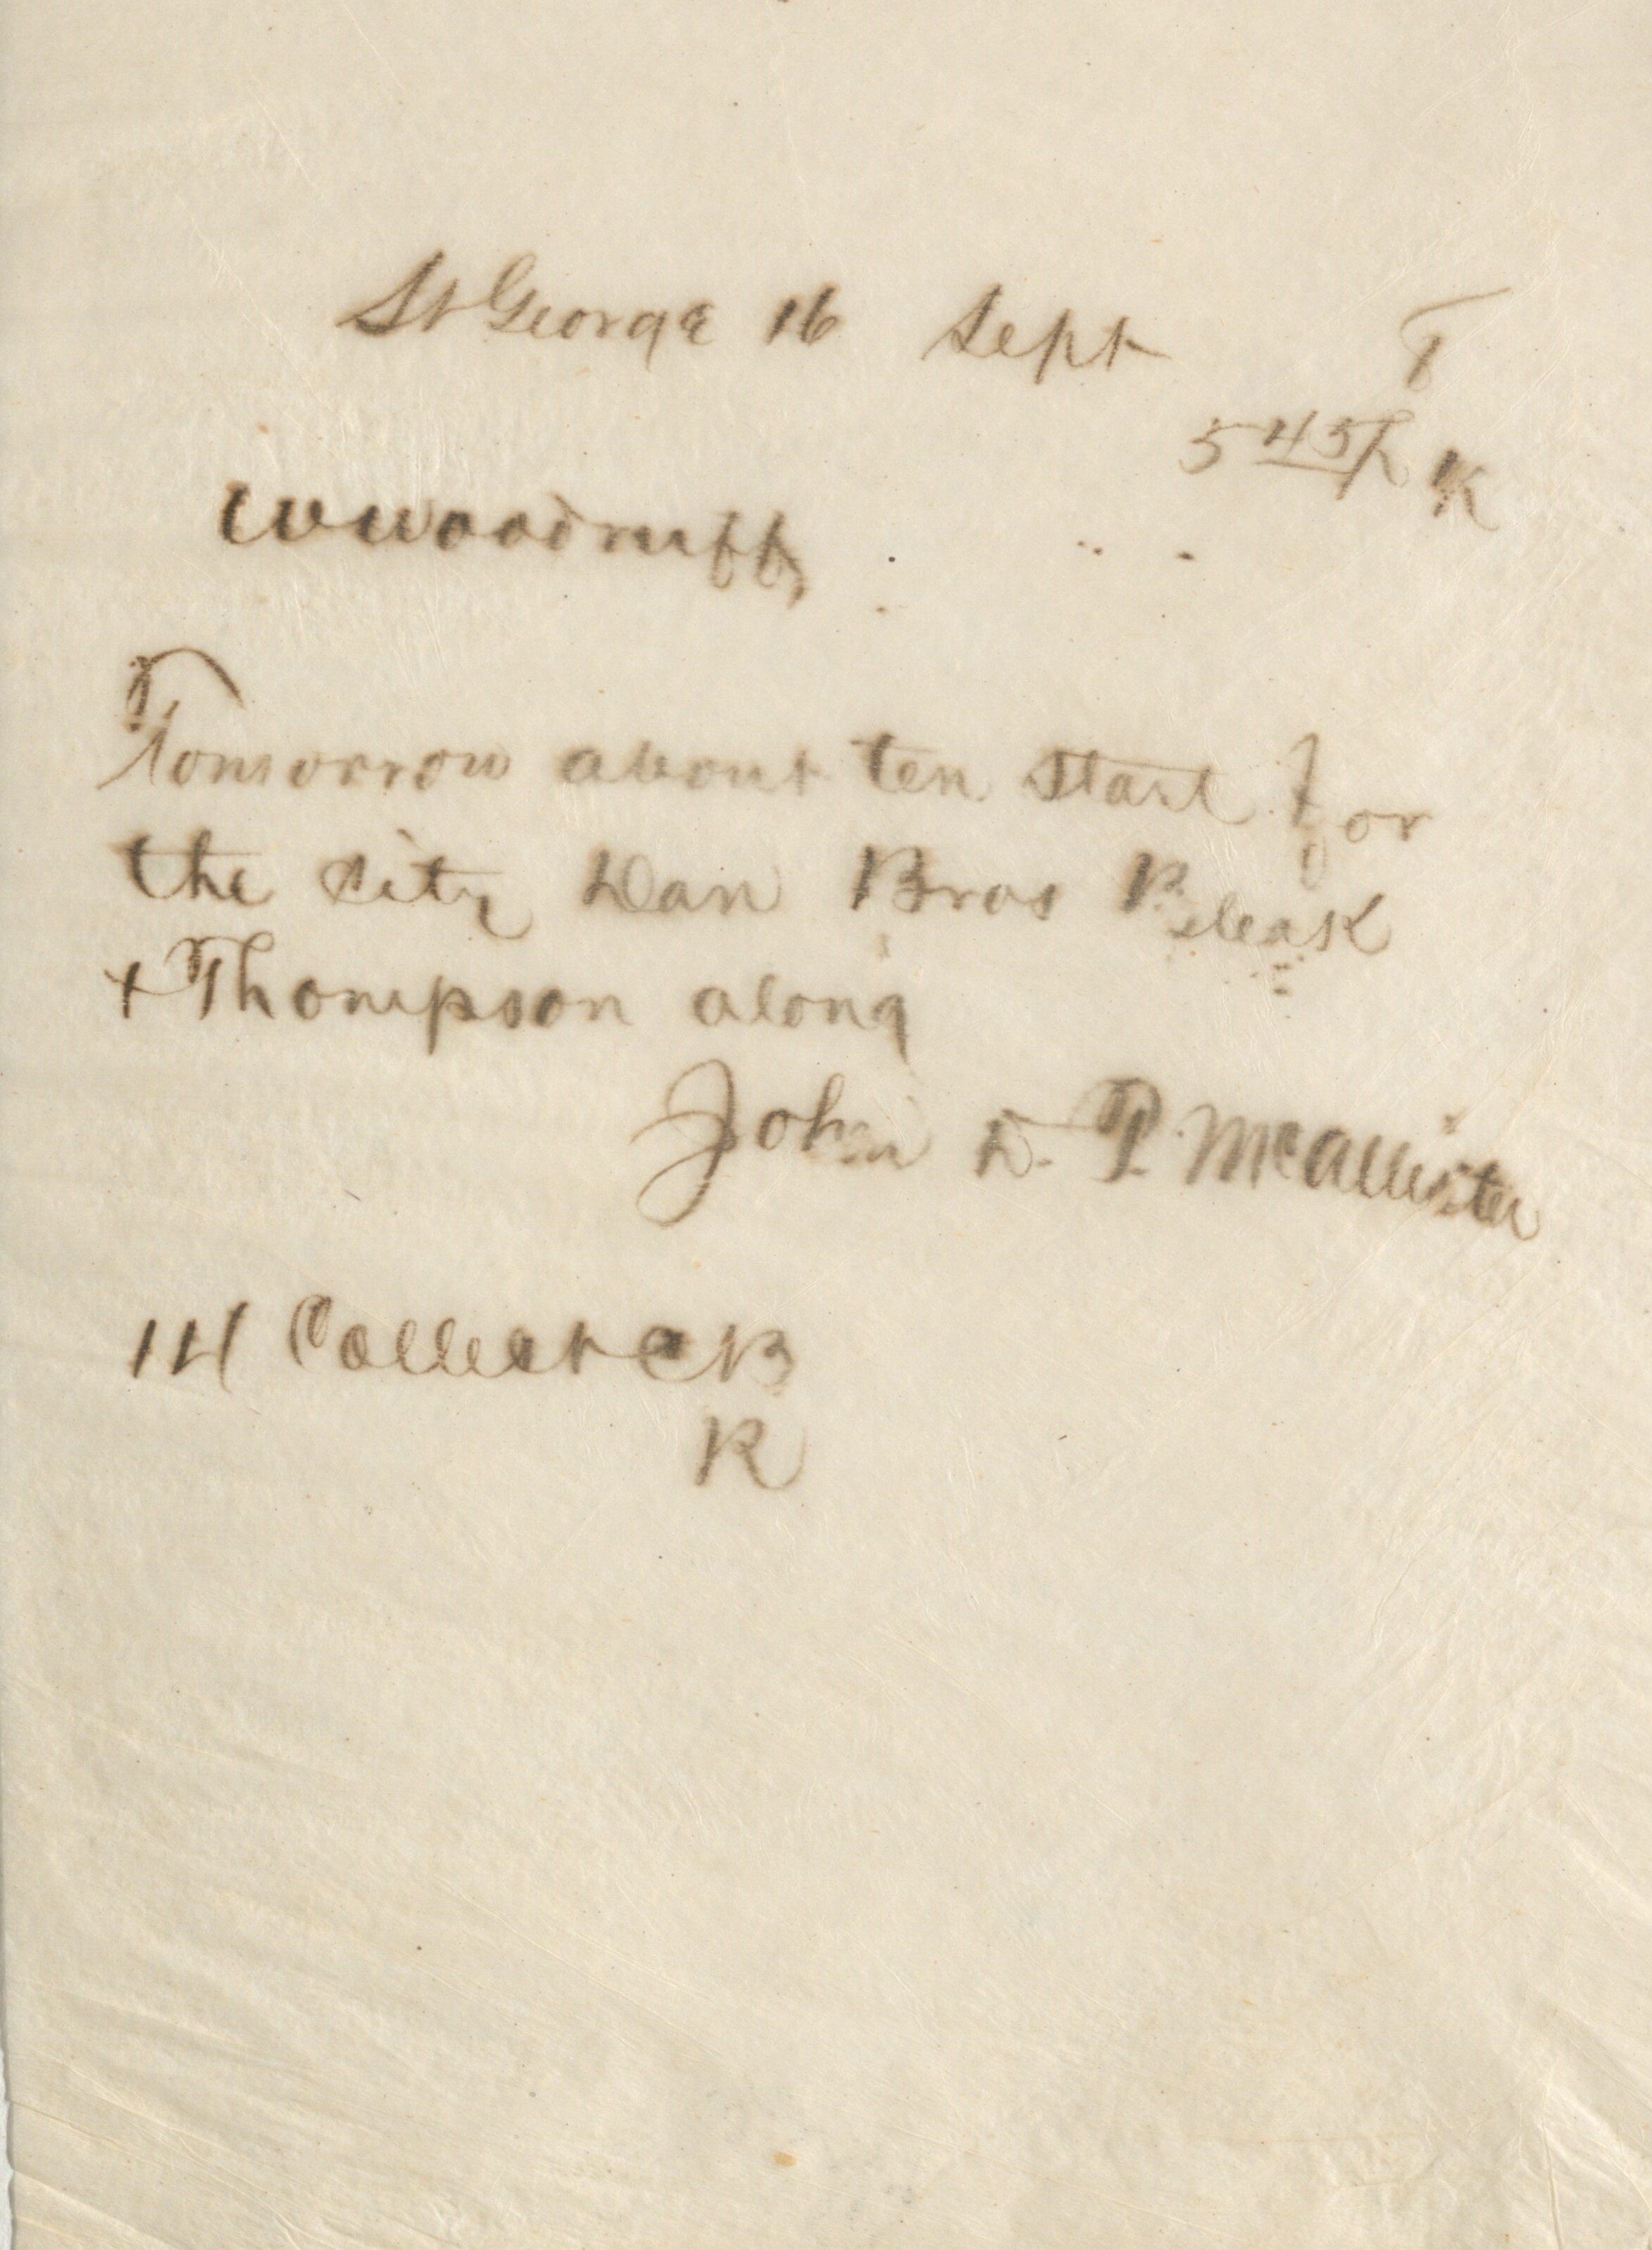 St George 16 Sept T
5 45 P K
W Woodruff,
Tomorrow about ten start for
the city Dan Bros Bleak
+ Thompson along
John D. T. McAllister
14 Collect CB
K